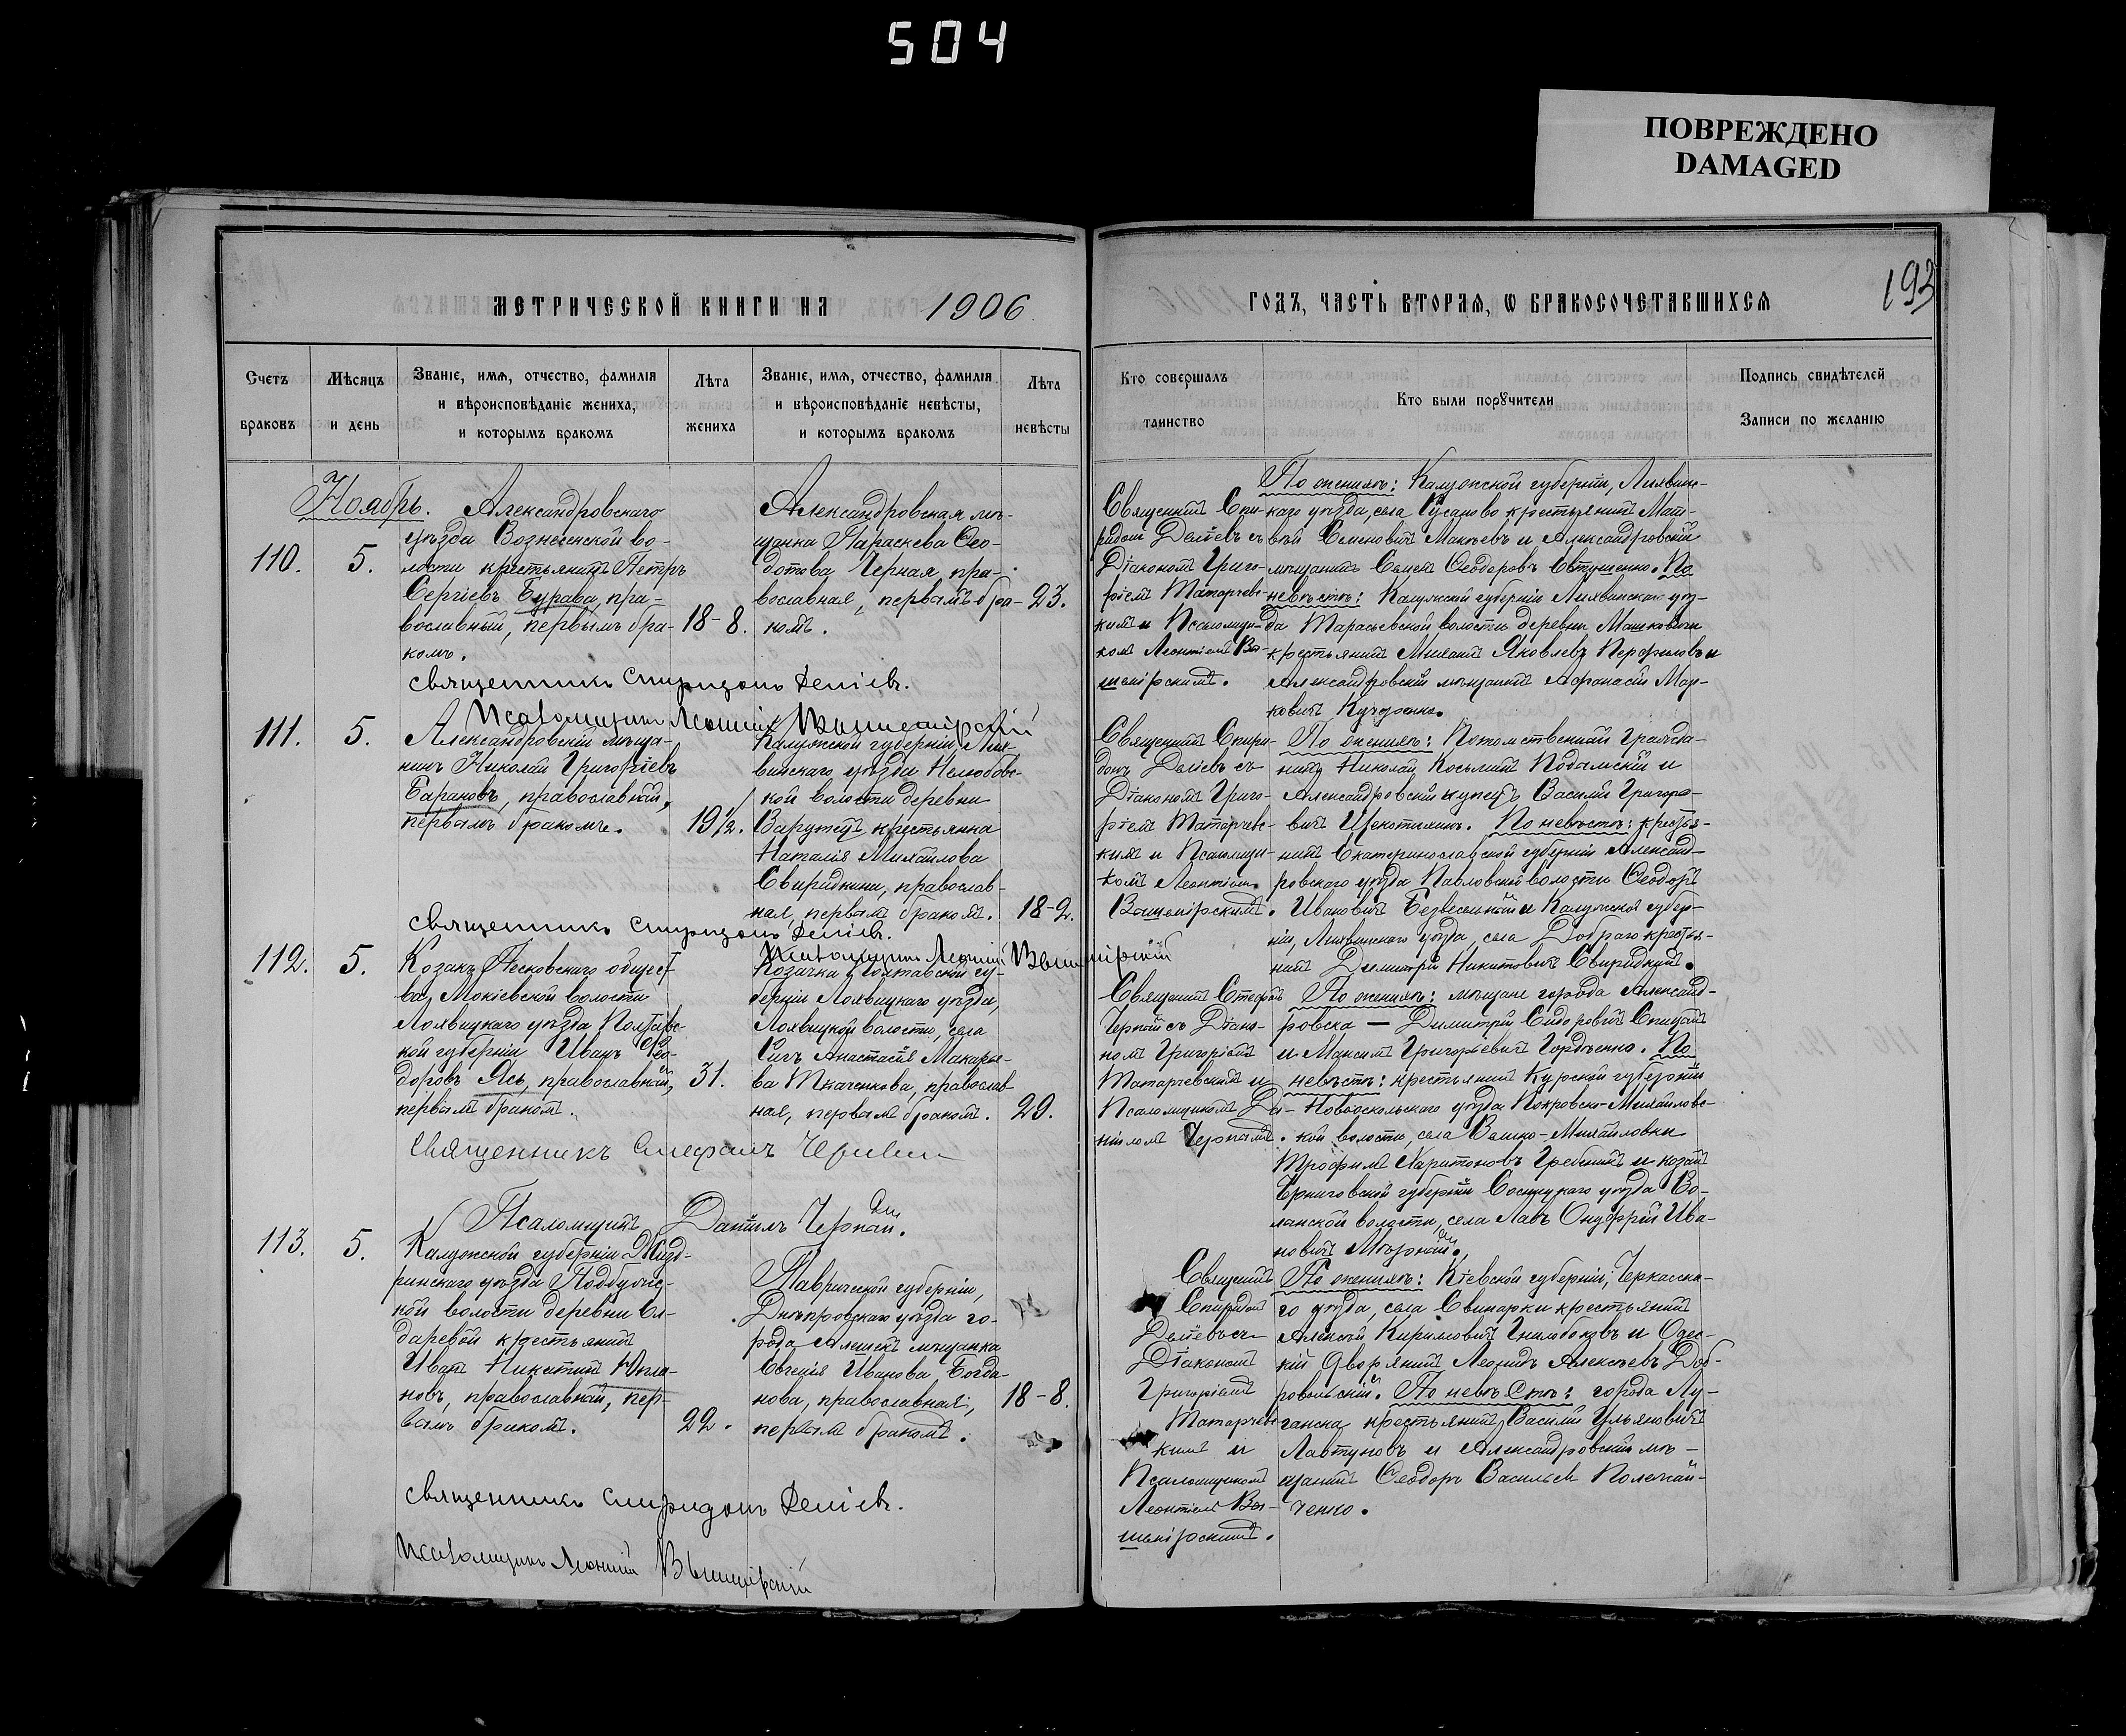 504
ПОВРЕЖДЕНО
DAMAGED
193
МЕТРИЧЕСКОЙ КНИГИ НА 1906
ГОДЪ, ЧАСТЬ ВТОРАЯ, Ѡ БРАКОСОЧЕТАВШИХСЯ
Счетъ
браковъ
Мѣсяцъ
и день
Званіе, имя, отчество, фамилія
и вѣроисповѣданіе жениха,
и которымъ бракомъ
Лѣта
жениха
Званіе, имя, отчество, фамилія
и вѣроисповѣданіе невѣсты,
и которымъ бракомъ
Лѣта
невѣсты
Кто совершалъ
таинство
Кто были поручители
Подпись свидѣтелей
Записи по желанію
Ноябрь.
110.
5.
Александровскаго
уѣзда Вознесенской во-
лости крестьянинъ Петръ
Сергіевъ Бурава, пра-
вославный, первымъ бра-
комъ.
18-8.
Александровская мѣ-
щанка Параскева Ѳео-
дотова Черная, пра-
вославная, первымъ бра-
комъ.
23.
Священникъ Спи-
ридонъ Делiевъ съ
Діакономъ Григо-
ріемъ Матарчевс-
кимъ и Псаломщи-
комъ Леонтіемъ Вы-
шемірскимъ.
По женихѣ: Калужской губерніи, Лихвинс-
каго уѣзда, села крестьянинъ Мат-
вѣй Семеновичъ Макѣевъ и Александровскій
мѣщанинъ Ѳеодоровъ Евтушенко. По
невѣстѣ: Калужской губерніи Лихвинскаго уѣз-
да волости деревни
крестьянинъ Михаилъ Яковлевъ и
Александровскій мѣщанинъ Афанасій Мар-
ковичъ
Священникъ Спиридонъ Делiевъ.
Псаломщикъ Леонтій Вышемірскій
111.
5.
Александровскій мѣща-
нинъ Николай Григоріевъ
Барановъ, православный,
первымъ бракомъ.
19½.
Калужской губерніи, Лих-
винскаго уѣзда
кой волости деревни
крестьянка
Наталія Михайлова
Свиридкина, православ-
ная, первымъ бракомъ.
18-2.
Священникъ Спири-
донъ Делiевъ съ
Діакономъ Григо-
ріемъ Матарчевс-
кимъ и Псаломщи-
комъ Леонтіемъ
Вышемірскимъ.
По женихѣ: Потомственный гражда-
нинъ Николай Косьминъ Подольскій и
Александровскій купецъ Василій Григорье-
вичъ Щекотихинъ. По невѣстѣ: крестья-
нинъ Екатеринославской губерніи Александ-
ровскаго уѣзда Павловской волости Ѳеодоръ
Ивановичъ и Калужской губер-
ніи, Лихвинскаго уѣзда, села Добраго крестья-
нинъ Димитрій Никитовичъ Свиридкинъ.
Священникъ Спиридонъ Делiевъ.
Псаломщикъ Леонтій Вышемірскій
112.
5.
Козакъ Песковскаго общест-
ва, Мокіевской волости
Лохвицкаго уѣзда Полтавс-
кой губерніи Иванъ Ѳео-
доровъ Ясь, православный,
первымъ бракомъ.
31.
Козачка Полтавской гу-
берніи Лохвицкаго уѣзда,
Лохвицкой волости, села
Анастасія Макарье-
ва Ткаченкова, православ-
ная, первымъ бракомъ.
20.
Священникъ Стефанъ
Черный съ Діако-
номъ Григоріемъ
Матарчевскимъ и
Псаломщикомъ Да-
ніиломъ Чернымъ.
По женихѣ: мѣщане города Александ-
ровска — Димитрій Сидоровичъ Спицынъ
и Максимъ Григорьевичъ Гордѣенко. По
невѣстѣ: крестьянинъ Курской губерніи
Новооскольскаго уѣзда Покровско-Михайловс-
кой волости, села Михайловки
Трофимъ Харитоновъ Гребеникъ и козакъ
Черниговской губерніи Сосницкаго уѣзда Во-
линской волости, села Лавъ Онуфрій Ива-
новичъ
Священникъ Стефанъ Черный
Псаломщикъ Даніилъ Черный.
113.
5.
Калужской губерніи Жизд-
ринскаго уѣзда Поддубровс-
кой волости деревни
крестьянинъ
Иванъ Никитинъ
новъ, православный, пер-
вымъ бракомъ.
22.
Таврической губерніи,
Днѣпровскаго уѣзда го-
рода Алешекъ мѣщанка
Евгенія Иванова Богда-
нова, православная,
первымъ бракомъ.
18-8.
Священникъ
Спиридонъ
Делiевъ съ
Діакономъ
Григоріемъ
Матарчевс-
кимъ и
Псаломщикомъ
Леонтіемъ Вы-
шемірскимъ.
По женихѣ: Кіевской губерніи, Черкасска-
го уѣзда, села Свинарки крестьянинъ
Алексѣй Кириловичъ Гнилобоковъ и Одес-
кій дворянинъ Леонидъ Алексѣевъ Доб-
ровольскій. По невѣстѣ: города Лу-
ганска крестьянинъ Василій Ульяновичъ
Лавтуновъ и Александровскій мѣ-
щанинъ Ѳеодоръ Васильевъ
ченко.
Священникъ Спиридонъ Делiевъ.
Псаломщикъ Леонтій Вышемірскій